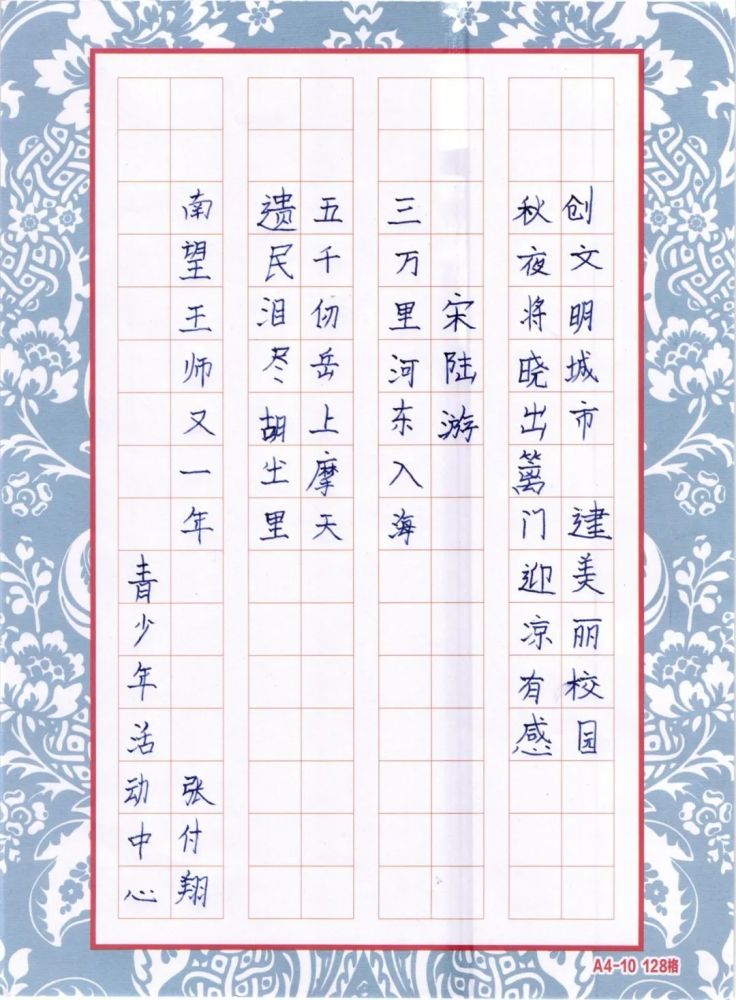 创文明城市 建美丽校园
秋夜将晓出篱门迎凉有感
宋陆游
三万里河东入海
五千仞岳上摩天
遗民泪尽胡尘里
南望王师又一年
张付翔
青少年活动中心
A4-10 128格